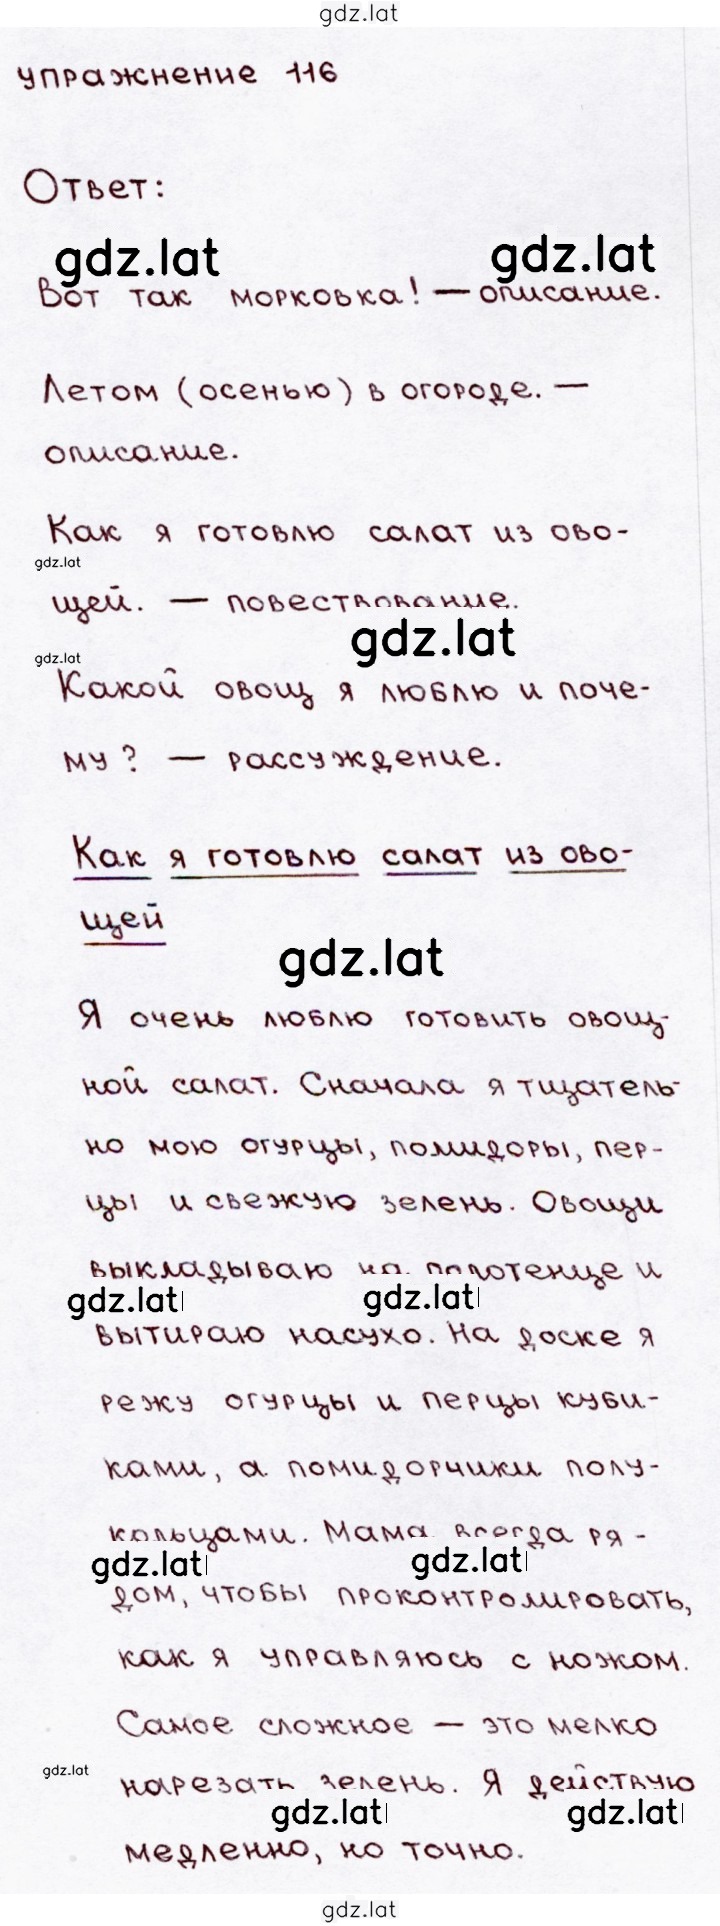 gdz.lat
упражнение 116
Ответ:
gdz.lat gdz.lat
Вот так морковка! — описание.
Летом (осенью) в огороде. —
описание.
Как я готовлю салат из ово-
gdz.lat
щей. — повествование.
gdz.lat
gdz.lat
Какой овощ я люблю и поче-
му? — рассуждение.
Как я готовлю салат из ово-
щей
gdz.lat
Я очень люблю готовить овощ-
ной салат. Сначала я тщатель-
но мою огурцы, помидоры, пер-
цы и свежую зелень. Овощи
выкладываю на полотенце и
gdz.lat gdz.lat
вытираю насухо. На доске я
режу огурцы и перцы куби-
ками, а помидорчики полу-
кольцами. Мама всегда ря-
gdz.lat gdz.lat
дом, чтобы проконтролировать,
как я управляюсь с ножом.
Самое сложное — это мелко
gdz.lat
нарезать зелень. Я действую
gdz.lat gdz.lat
медленно, но точно.
gdz.lat